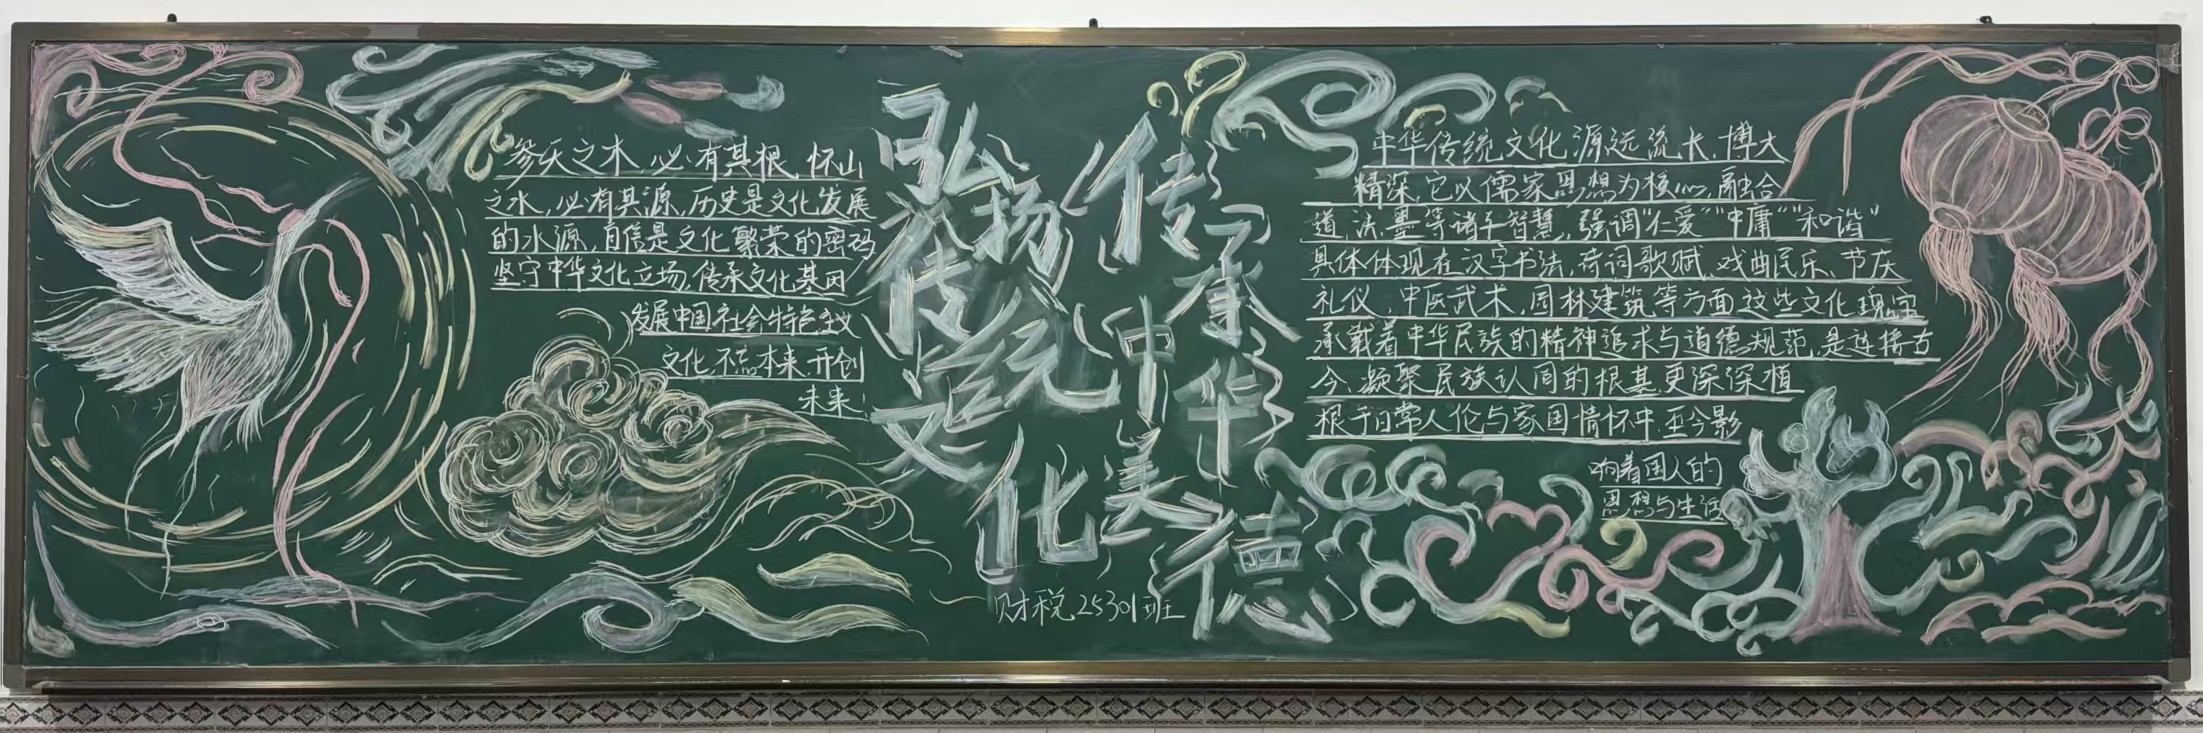 参天之木,必有其根,怀山
之水,必有其源,历史是文化发展
的水源,自信是文化繁荣的密码
坚守中华文化立场,传承文化基因
发展中国社会特色主义
文化,不忘本来,开创
未来!
弘扬传统文化
传承中华美德
财税25301班
中华传统文化源远流长,博大
精深,它以儒家思想为核心,融合
道、法、墨等诸子智慧,强调“仁爱”“中庸”“和谐”
具体体现在汉字书法,诗词歌赋,戏曲民乐、节庆
礼仪,中医武术,园林建筑等方面,这些文化瑰宝
承载着中华民族的精神追求与道德规范,是连接古
今,凝聚民族认同的根基,更深深植
根于日常人伦与家国情怀中,至今影
响着国人的
思想与生活